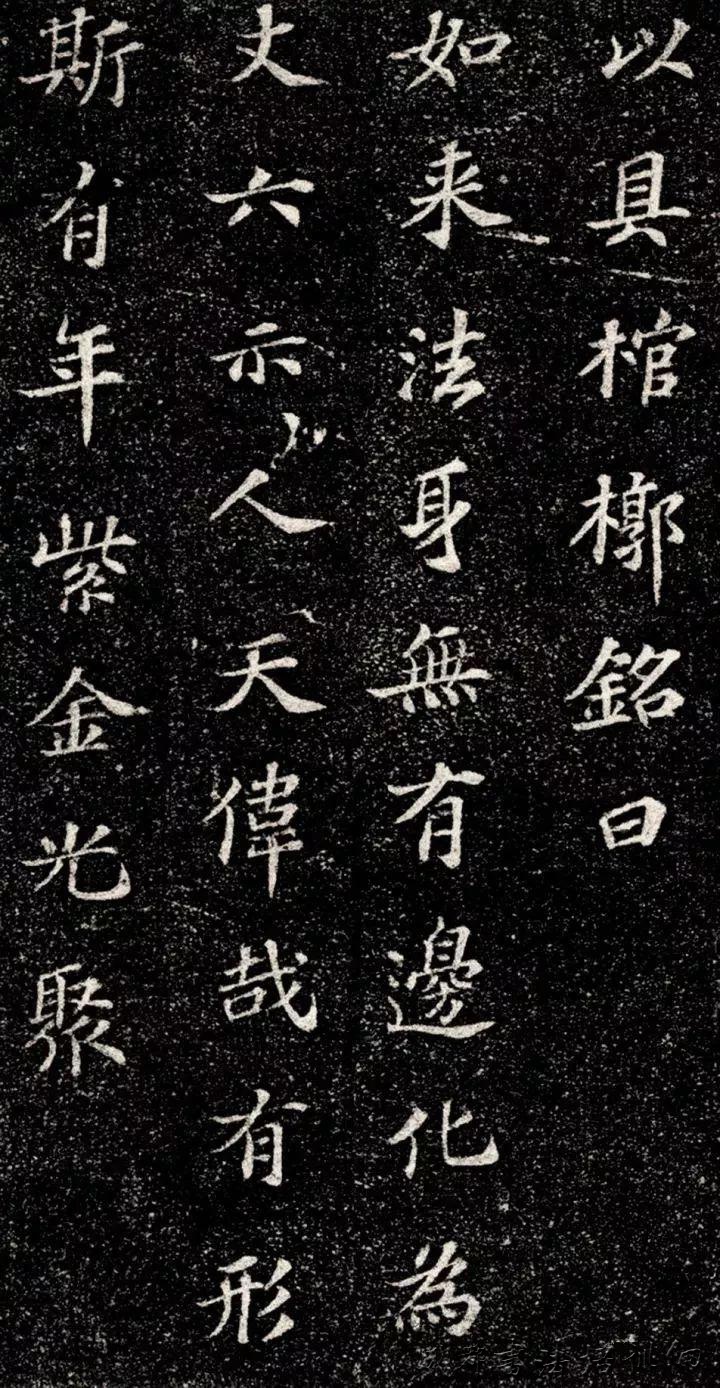 以具棺槨銘曰
如来法身無有邊化為
丈六示人天偉哉有形
斯有年紫金光聚